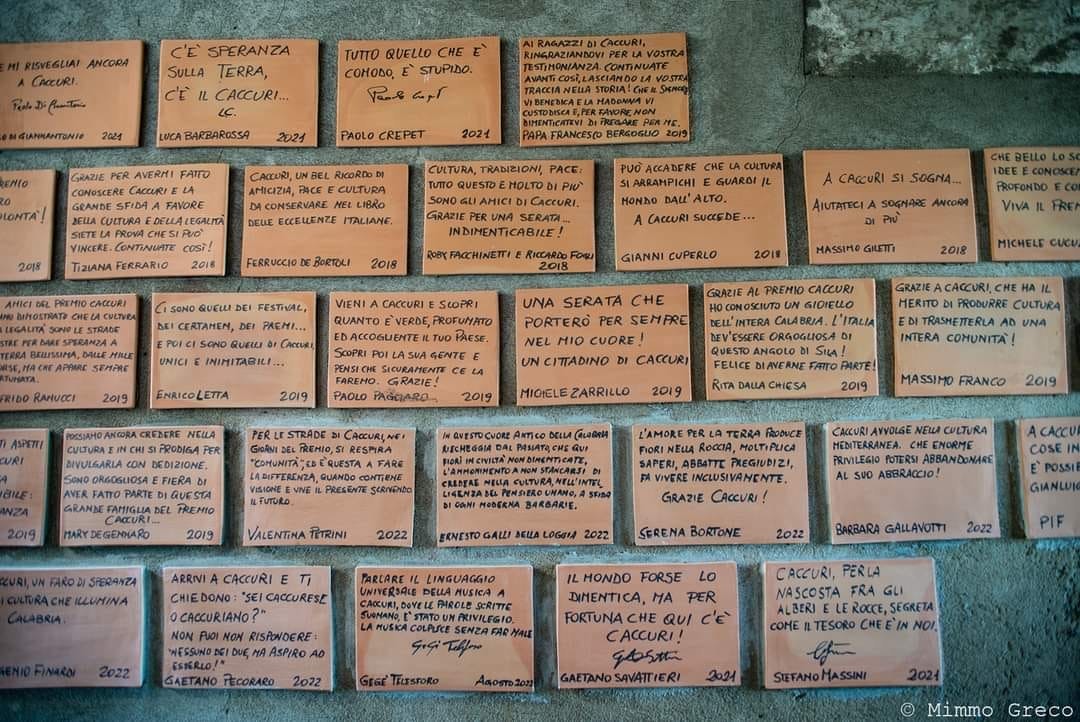 E MI RISVEGLIAI ANCORA
A CACCURI.
O DI GIANNANTONIO 2021
C'È SPERANZA
SULLA TERRA,
C'È IL CACCURI...
LUCA BARBAROSSA 2021
TUTTO QUELLO CHE È
COMODO, È STUPIDO.
PAOLO CREPET 2021
AI RAGAZZI DI CACCURI,
RINGRAZIANDOVI PER LA VOSTRA
TESTIMONIANZA. CONTINUATE
AVANTI COSÌ, LASCIANDO LA VOSTRA
TRACCIA NELLA STORIA! CHE IL SIGNORE
VI BENEDICA E LA MADONNA VI
CUSTODISCA E, PER FAVORE, NON
DIMENTICATEVI DI PREGARE PER ME.
PAPA FRANCESCO BERGOGLIO 2019
REMIO
RO
LONTA'!
2018
GRAZIE PER AVERMI FATTO
CONOSCERE CACCURI E LA
GRANDE SFIDA A FAVORE
DELLA CULTURA E DELLA LEGALITÀ
SIETE LA PROVA CHE SI PUÒ
VINCERE. CONTINUATE COSÌ!
TIZIANA FERRARIO 2018
CACCURI, UN BEL RICORDO DI
AMICIZIA, PACE E CULTURA
DA CONSERVARE NEL LIBRO
DELLE ECCELLENZE ITALIANE.
FERRUCCIO DE BORTOLI 2018
CULTURA, TRADIZIONI, PACE:
TUTTO QUESTO E MOLTO DI PIÙ
SONO GLI AMICI DI CACCURI.
GRAZIE PER UNA SERATA...
INDIMENTICABILE!
ROBY FACCHINETTI E RICCARDO FOGLI
2018
PUÒ ACCADERE CHE LA CULTURA
SI ARRAMPICHI E GUARDI IL
MONDO DALL'ALTO.
A CACCURI SUCCEDE...
GIANNI CUPERLO 2018
A CACCURI SI SOGNA...
AIUTATECI A SOGNARE ANCORA
DI PIÙ
MASSIMO GILETTI 2018
CHE BELLO LO SC
IDEE E CONOSCEN
PROFONDO E CO
VIVA IL PREM
MICHELE CUCU
AMICI DEL PREMIO CACCURI
MO DIMOSTRATO CHE LA CULTURA
LEGALITA' SONO LE STRADE
STRE PER DARE SPERANZA A
TERRA BELLISSIMA, DALLE MILLE
ORSE, MA CHE APPARE SEMPRE
RTUNATA.
FRIDO RANUCCI 2019
CI SONO QUELLI DEI FESTIVAL,
DEI CERTAMEN, DEI PREMI...
E POI CI SONO QUELLI DI CACCURI,
UNICI E INIMITABILI...
ENRICO LETTA 2019
VIENI A CACCURI E SCOPRI
QUANTO È VERDE, PROFUMATO
ED ACCOGLIENTE IL TUO PAESE.
SCOPRI POI LA SUA GENTE E
PENSI CHE SICURAMENTE CE LA
FAREMO. GRAZIE!
PAOLO 2019
UNA SERATA CHE
PORTERÒ PER SEMPRE
NEL MIO CUORE!
UN CITTADINO DI CACCURI
MICHELE ZARRILLO 2019
GRAZIE AL PREMIO CACCURI
HO CONOSCIUTO UN GIOIELLO
DELL'INTERA CALABRIA. L'ITALIA
DEV'ESSERE ORGOGLIOSA DI
QUESTO ANGOLO DI SILA!
FELICE DI AVERNE FATTO PARTE!
RITA DALLA CHIESA 2019
GRAZIE A CACCURI, CHE HA IL
MERITO DI PRODURRE CULTURA
E DI TRASMETTERLA AD UNA
INTERA COMUNITÀ!
MASSIMO FRANCO 2019
TI ASPETI
CURI
SA
MIBILE:
ANZA
2019
POSSIAMO ANCORA CREDERE NELLA
CULTURA E IN CHI SI PRODIGA PER
DIVULGARLA CON DEDIZIONE.
SONO ORGOGLIOSA E FIERA DI
AVER FATTO PARTE DI QUESTA
GRANDE FAMIGLIA DEL PREMIO
CACCURI...
MARY DE GENNARO 2019
PER LE STRADE DI CACCURI, NEI
GIORNI DEL PREMIO, SI RESPIRA
"COMUNITÀ", ED È QUESTA A FARE
LA DIFFERENZA, QUANDO CONTIENE
VISIONE E VIVE IL PRESENTE SCRIVENDO
IL FUTURO.
VALENTINA PETRINI 2022
IN QUESTO CUORE ANTICO DELLA CALABRIA
RIECHEGGIA DAL PASSATO, CHE QUI
FIORÌ IN CIVILTÀ NON DIMENTICATE,
L'AMMONIMENTO A NON STANCARSI DI
CREDERE NELLA CULTURA, NELL'INTEL
LIGENZA DEL PENSIERO UMANO, A SFIDA
DI OGNI MODERNA BARBARIE.
ERNESTO GALLI DELLA LOGGIA 2022
L'AMORE PER LA TERRA PRODUCE
FIORI NELLA ROCCIA, MOLTIPLICA
SAPERI, ABBATTE PREGIUDIZI,
FA VIVERE INCLUSIVAMENTE.
GRAZIE CACCURI!
SERENA BORTONE 2022
CACCURI AVVOLGE NELLA CULTURA
MEDITERRANEA. CHE ENORME
PRIVILEGIO POTERSI ABBANDONARE
AL SUO ABBRACCIO!
BARBARA GALLAVOTTI 2022
A CACCUR
COSE IN
È POSSIB
GIANLUIG
PIF
CCURI, UN FARO DI SPERANZA
I CULTURA CHE ILLUMINA
CALABRIA.
GENIO FINARDI 2022
ARRIVI A CACCURI E TI
CHIEDONO: "SEI CACCURESE
O CACCURIANO?"
NON PUOI NON RISPONDERE:
"NESSUNO DEI DUE, MA ASPIRO AD
ESSERLO!"
GAETANO PECORARO 2022
PARLARE IL LINGUAGGIO
UNIVERSALE DELLA MUSICA A
CACCURI, DOVE LE PAROLE SCRITTE
SUONANO, È STATO UN PRIVILEGIO.
LA MUSICA COLPISCE SENZA FAR MALE
GEGÈ TELESFORO AGOSTO 2022
IL MONDO FORSE LO
DIMENTICA, MA PER
FORTUNA CHE QUI C'È
CACCURI!
GAETANO SAVATTIERI 2021
CACCURI, PERLA
NASCOSTA FRA GLI
ALBERI E LE ROCCE, SEGRETA
COME IL TESORO CHE È IN NOI.
STEFANO MASSINI 2021
© Mimmo Greco